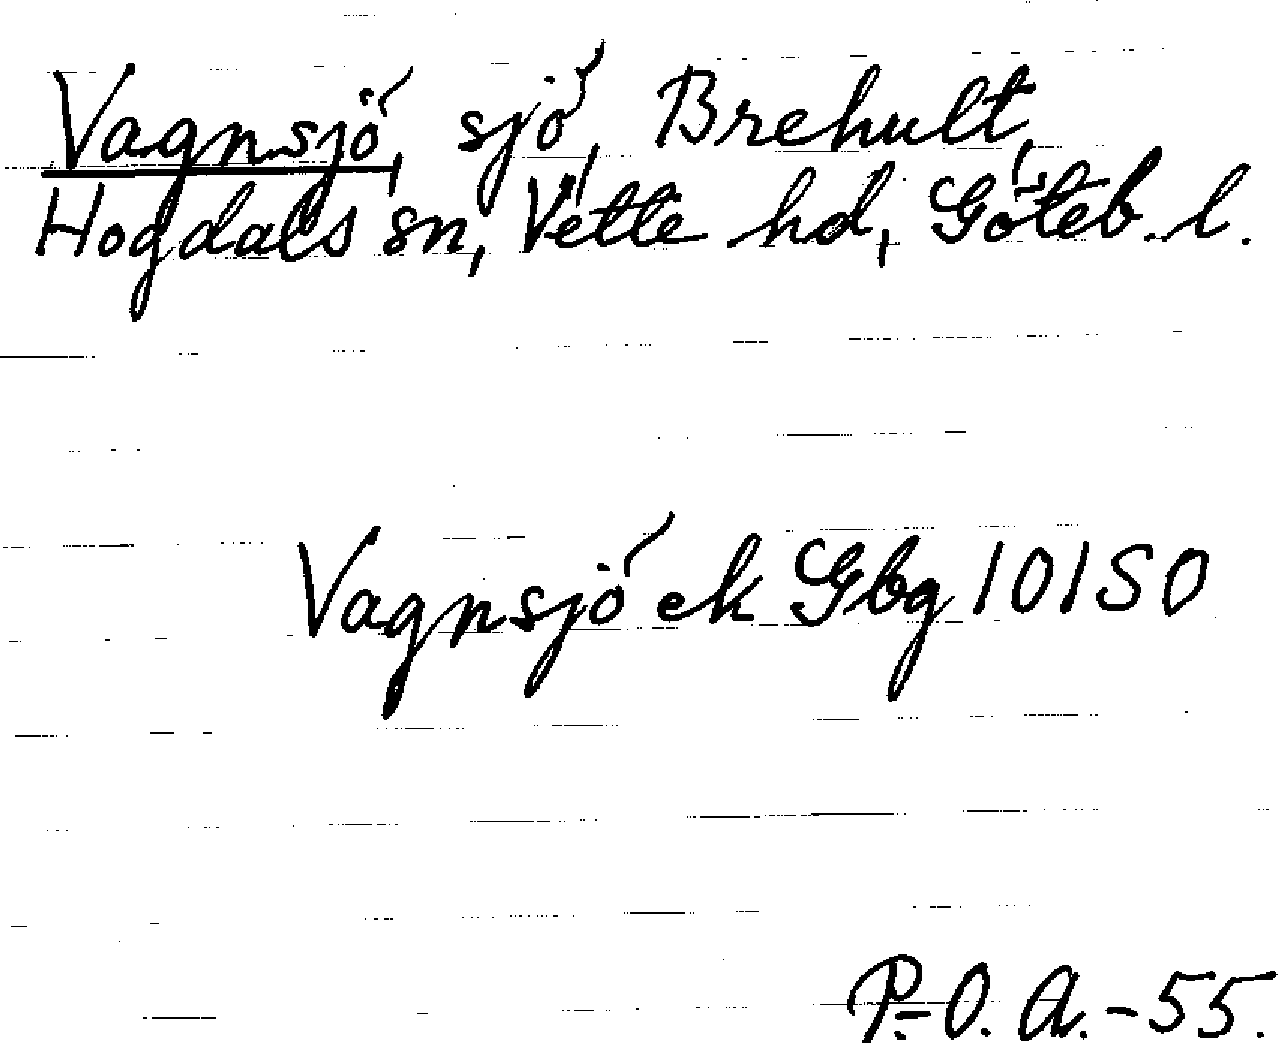 Vagnsjö, sjö, Brehult,
Hogdals sn, Vette hd, Göteb. l.
Vagnsjö ek Gbg 10150
P.-O. A. -55.